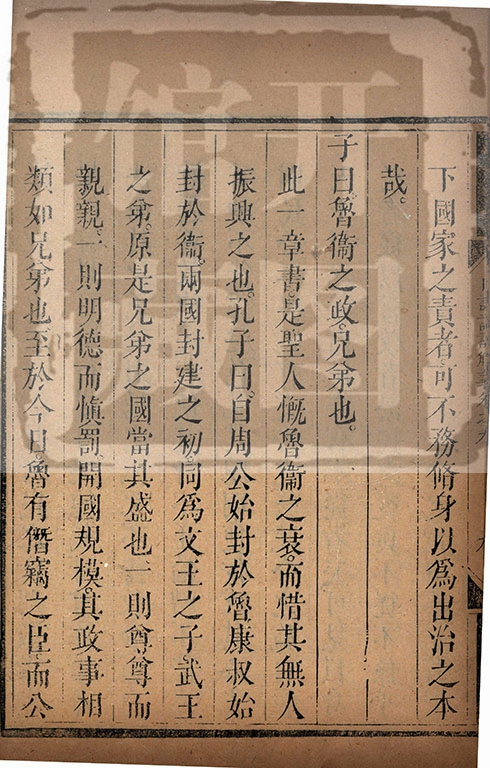 下國家之責者可不務脩身以爲出治之本
哉。
子曰魯衞之政。兄弟也。
此一章書是聖人慨魯衞之衰。而惜其無人
振興之也。孔子曰。自周公始封於魯。康叔始
封於衞。兩國封建之初。同爲文王之子武王
之弟。原是兄弟之國當其盛也一則尊尊而
親親。一則明德而愼罰。開國規模。其政事相
類如兄弟也至於今日。魯有僭竊之臣而公